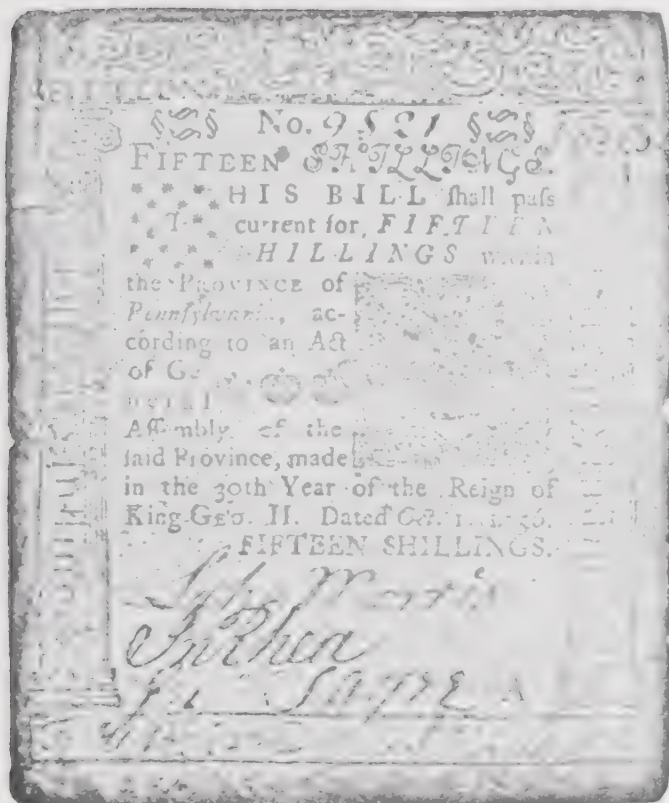 No. 9521
FIFTEEN SHILLINGS.
THIS BILL ſhall paſs
current for FIFTEEN
SHILLINGS within
the PROVINCE of
Pennſylvania, ac-
cording to an Act
of Ge
neral
Aſſembly of the
ſaid Province, made
in the 30th Year of the Reign of
King GEO. II. Dated Oct. 1, 1756.
FIFTEEN SHILLINGS.